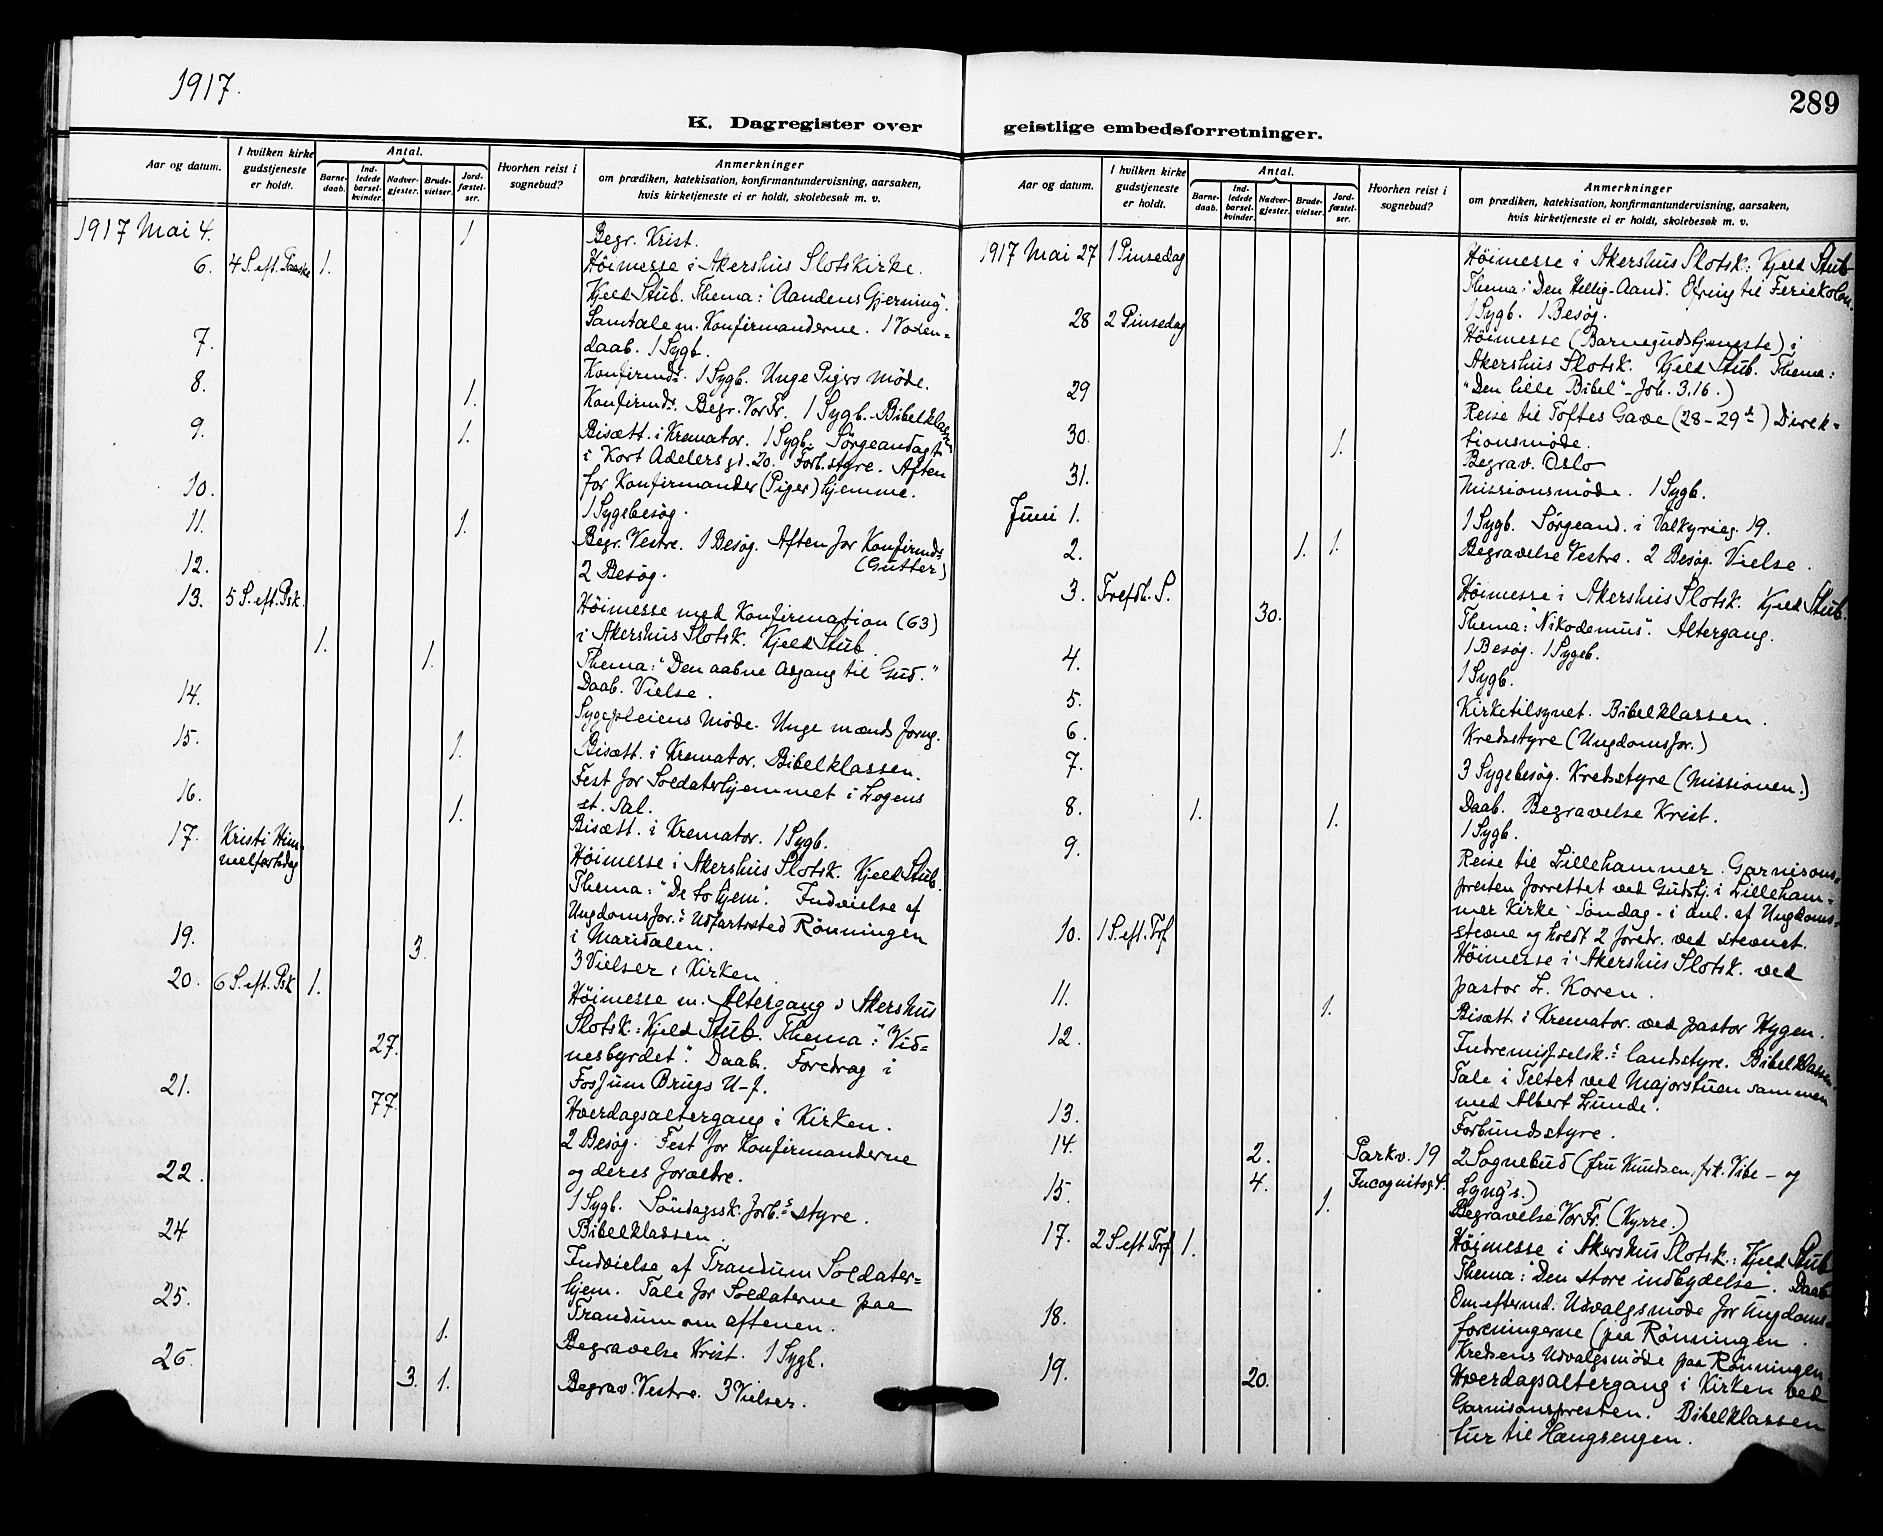 1917.
289
K. Dagregister over geistlige embedsforretninger.
Aar og datum.
I hvilken kirke gudstjeneste er holdt.
Antal.
Barne-daab.
Ind-ledede barsel-kvinder.
Nadver-gjester.
Brude-vielser.
Jord-fæstel-ser.
Hvorhen reist i sognebud?
Anmerkninger
om prædiken, katekisation, konfirmantundervisning, aarsaken,
hvis kirketjeneste ei er holdt, skolebesøk m. v.
1917 Mai 4. 1 Begr. Krist.
6. 4 S. eft. Paaske 1. Höimesse i Akershus Slotskirke.
Kjeld Stub. Thema: "Aandens Gjerning".
Samtale m. Konfirmanderne. 1 Voxen=
7. daab. 1 Sygb.
Konfirmds. 1 Sygb. Unge Pigers Møde.
8. 1. Konfirmds. Begr. Vor Fr. 1 Sygb. Bibelklassen
9. 1. Bisætt. i Kremator. 1 Sygb. Sørgeandagt
i Kort Adelers gd. 20. Forb.styre. Aften
10. for Konfirmander (Piger) hjemme.
1 Sygebesøg.
11. 1. Begr. Vestre. 1 Besøg. Aften for Konfirmds
(Gutter)
12. 2 Besøg.
13. 5 S. eft. Psk. Höimesse med Konfirmation (63)
1. 1. i Akershus Slotsk. Kjeld Stub.
Thema: "Den aabne Adgang til Gud."
Daab. Vielse.
14. Sygepleiens Møde. Unge mænds foreng.
15. 1. Bisætt. i Kremator. Bibelklassen.
Fest for Soldaterhjemmet i Logens
16. st. Sal.
1. Bisætt. i Kremator. 1 Sygb.
17. Kristi Him-
melfartsdag Höimesse i Akershus Slotsk. Kjeld Stub.
Thema: "De to hjem". Indvielse af
Ungdomsfor.s Udfartssted Rönningen
i Maridalen.
19. 3. 3 Vielser i Kirken
20. 6 S. eft. Psk 1. Höimesse m. Altergang i Akershus
27. Slotsk: Kjeld Stub. Thema: "Vid=
nesbyrdet". Daab. Foredrag i
Fossum Brugs U-f.
21. 77. Hverdagsaltergang i Kirken.
2 Besøg. Fest for Konfirmanderne
og deres forældre.
22. 1 Sygb. Söndagssk. forb.s styre.
Bibelklassen.
24 Indvielse af Trandum Soldater=
hjem. Tale for Soldaterne paa
Trandum om aftenen.
25. 1. Begravelse Krist. 1 Sygb.
26. 3. 1. Begrav. Vestre. 3 Vielser.
Aar og datum.
I hvilken kirke gudstjeneste er holdt.
Antal.
Barne-daab.
Ind-ledede barsel-kvinder.
Nadver-gjester.
Brude-vielser.
Jord-fæstel-ser.
Hvorhen reist i sognebud?
Anmerkninger
om prædiken, katekisation, konfirmantundervisning, aarsaken,
hvis kirketjeneste ei er holdt, skolebesøk m. v.
1917 Mai 27 1 Pinsedag Höimesse i Akershus Slotsk: Kjeld Stub
Thema: "Den Hellig-Aand". Ofring til Feriekolon.
1 Sygb. 1 Besøg.
28 2 Pinsedag Höimesse (Barnegudstjeneste) i
Akershus Slotsk. Kjeld Stub. Thema:
"Den lille Bibel" Joh. 3.16.)
29 Reise til Toftes Gave (28-29de) Direk=
tionsmøde.
30. 1. Begrav. Oslo
31. Missionsmøde. 1 Sygb.
Juni 1. 1 Sygb. Sørgeand. i Valkyrieg. 19.
2. 1. 1. Begravelse Vestre. 2 Besøg. Vielse.
3. Trefdh. S. 30. Höimesse i Akershus Slotsk. Kjeld Stub.
Thema: "Nikodemus". Altergang.
1 Besøg. 1 Sygeb.
4. 1 Sygb.
5. Kirketilsynet. Bibelklassen.
6. Kredsstyre (Ungdomsfor.)
7. 3 Sygebesøg. Kredsstyre (Missionen.)
8. 1. 1. Daab. Begravelse Krist.
1 Sygb.
9. Reise til Lillehammer. Garnisons=
presten forrettet ved Gudstj. i Lilleham=
mer Kirke Söndag i anl. af Ungdoms=
stevne og holdt 2 foredr. ved stevnet.
10. 1 S. eft. Trf Höimesse i Akershus Slotsk. ved
pastor L. Koren.
11. 1. Bisætt. i Kremator. ved pastor Hygen.
12. Indremisselsk.s landsstyre. Bibelklassen.
Tale i Teltet ved Majorstuen sammen
med Albert Lunde.
13. Forbundsstyre.
14. 2. Parkv. 19 2 Sognebud (fru Knudsen, frk. Vibe - og
4. Incognitog. Lyng's.)
15. 1. Begravelse Vor Fr. (Kyrre.)
17. 2 S eft Trf 1. Höimesse i Akershus Slotsk.: Kjeld Stub
Thema: "Den store indbydelse". Daab
Om eftermd. Udvalgsmøde for Ungdoms=
foreningerne (paa Rönningen.
18. Kredsens Udvalgsmøde paa Rönningen
19. 20. Hverdagsaltergang i Kirken ved
Garnisonspresten. Bibelklassen
tur til Hængsengen.